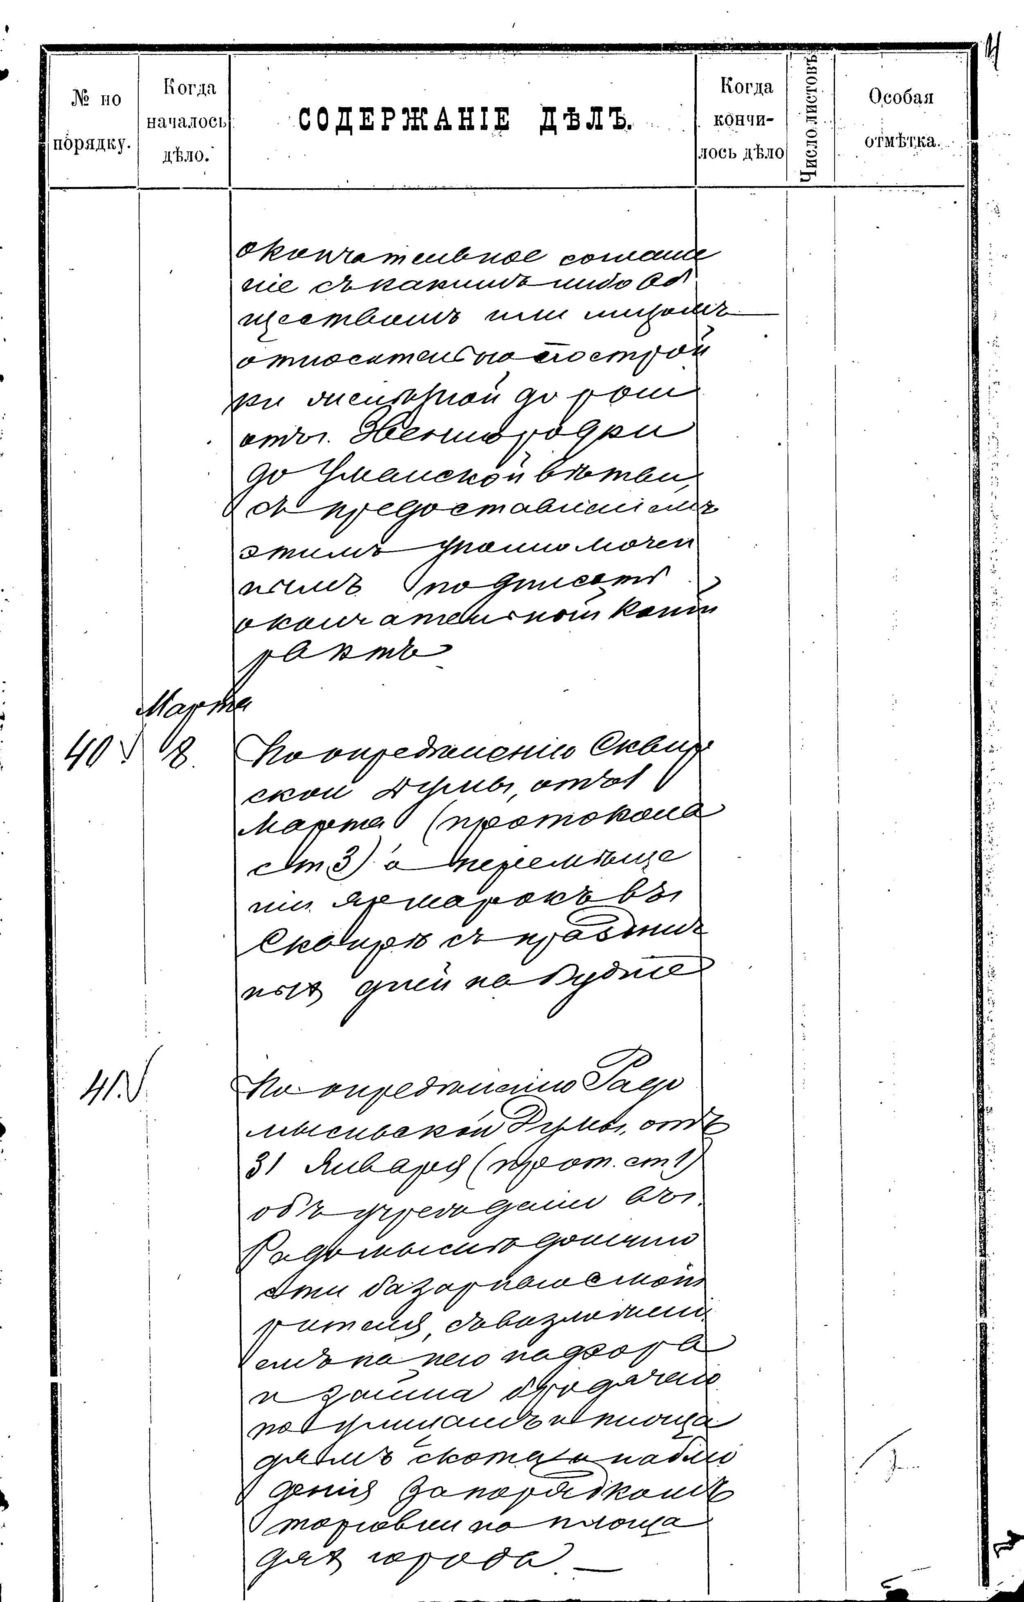 11
№ по порядку.
Когда началось дѣло.
СОДЕРЖАНІЕ ДѢЛЪ.
Когда кончилось дѣло
Число листовъ
Особая отмѣтка.
окончательное соглаше
ніе съ какимъ либо об
ществомъ или лицомъ
относительно построй
ки желѣзной дороги
отъ г. Звенигородки
до Уманской вѣтви,
съ предоставленіемъ
этимъ уполномочен
нымъ подписать
окончательный конт
рактъ
Марта
40. 8. По опредѣленію Сквир
ской Думы, отъ 1
Марта (протокола
ст. 3) о перемѣще
ніи ярмарокъ въ г.
Сквирѣ съ празднич
ныхъ дней на будніе
41. По опредѣленію Радо
мысльской Думы, отъ
31 Января (прот. ст. 1)
объ учрежденіи въ г.
Радомыслѣ должно
сти базарнаго смот
рителя, съ возложені
емъ на него надзора
и займа бродячаго
по улицамъ и площа
дямъ скота и наблю
денія за порядкомъ
торговли на площа
дяхъ города. —